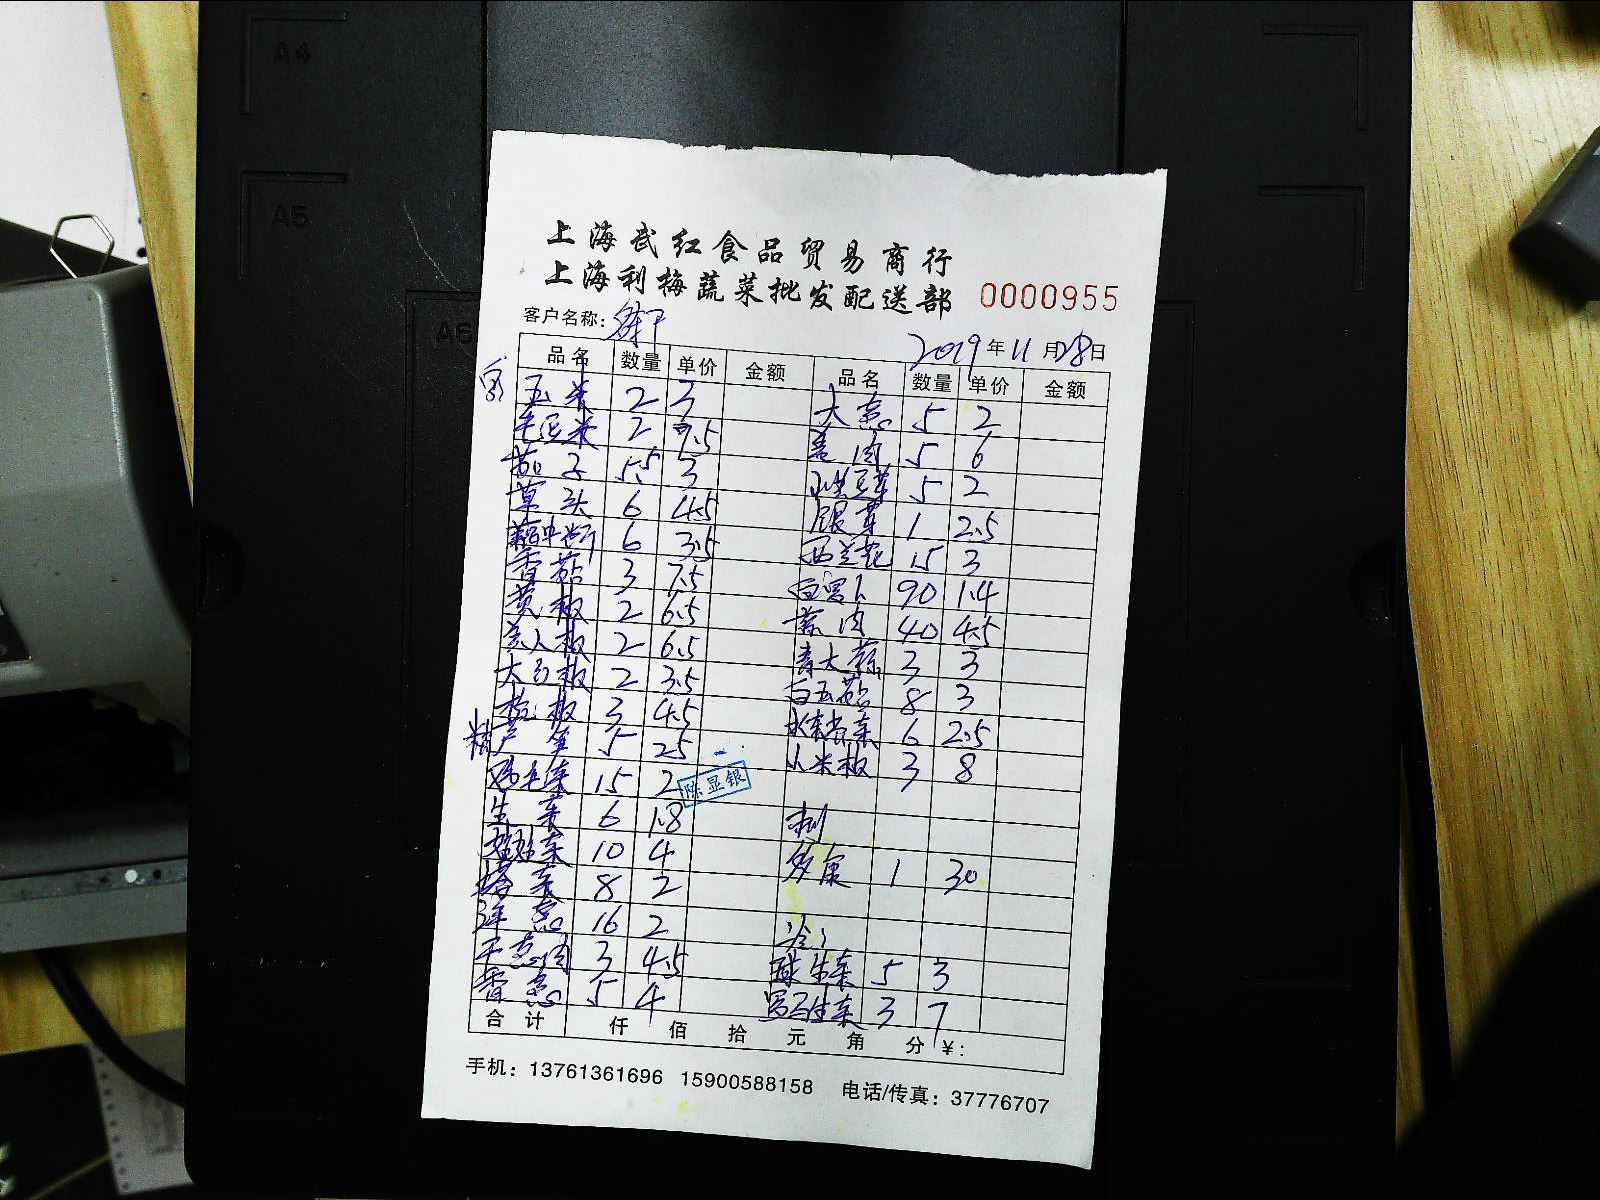 A4
A5
A6
上海武红食品贸易商行
上海利梅蔬菜批发配送部 0000955
客户名称:
2019年11月28日
品名 数量 单价 金额 品名 数量 单价 金额
玉米 2 3 大葱 5 2
毛豆米 2 7.5 姜肉 5 6
茄子 5.5 3 黄豆芽 5 2
草头 6 4.5 银芽 1 2.5
莴中断 6 3.5 西兰花 15 3
香菇 3 7.5 白萝卜 90 1.4
黄椒 2 6.5 蒜肉 40 4.5
美人椒 2 6.5 青大蒜 3 3
大红椒 2 3.5 白玉菇 8 3
3 4.5 6 2.5
芦笋 5 25 小米椒 3 8
15 2
陈显银
生菜 6 1.8
娃娃菜 10 4
塔菜 8 2 1 30
洋葱 16 2
干葱肉 3 4.5 球生菜 5 3
香葱 5 4 罗马生菜 3 7
合计 仟 佰 拾 元 角 分 ¥:
手机: 13761361696 15900588158 电话/传真: 37776707